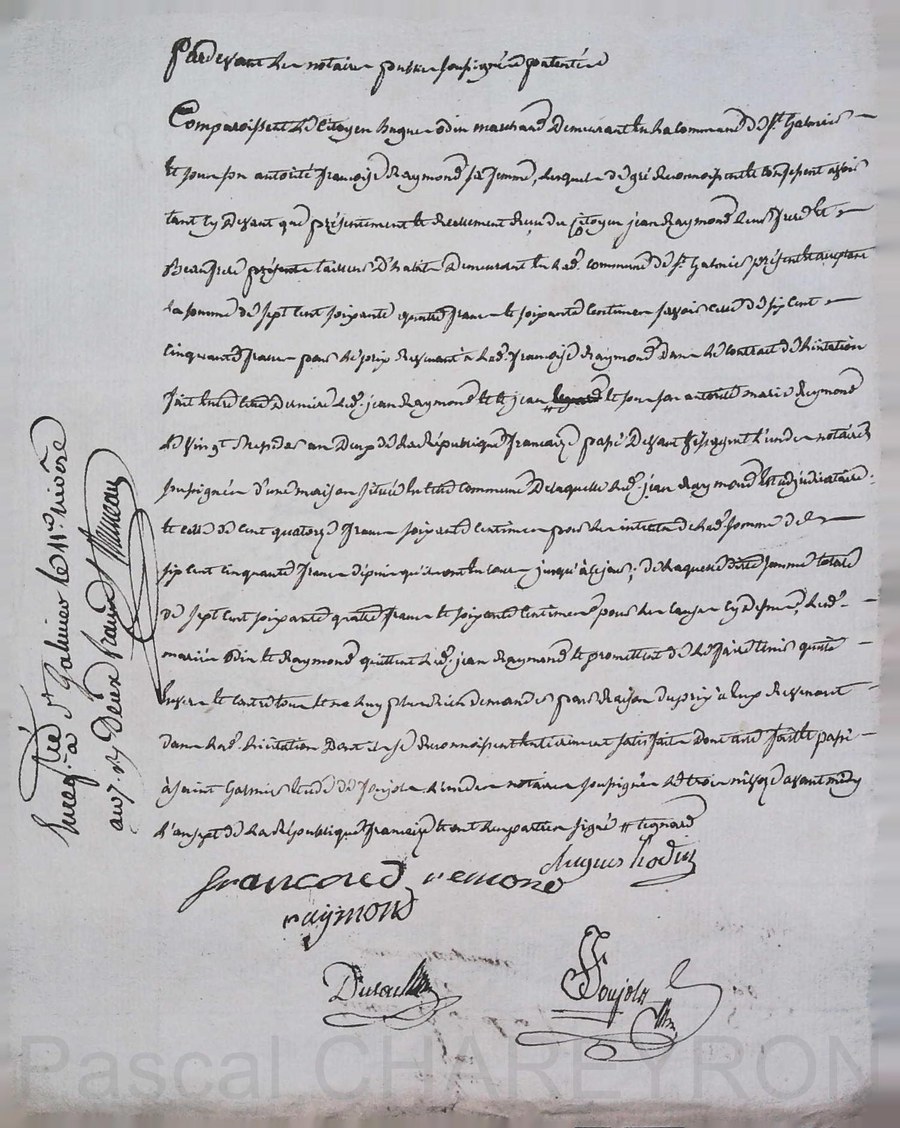 Pardevant les notaires publics soussignés patentés
Comparoissent le Citoyen hugue odin marchand demeurant en la commune de St. Galmier
et sous son autorité francoise Raymond sa femme, lesquels de gré reconnoissent et confessent avoir
tant cy devant que présentement et réellement reçu du Citoyen jean Raymond leur frere et
Beaufrere présente tailleur d'habits demeurant en lad. commune de St. Galmier présent et acceptant
la somme de sept cent soixante quatre francs et soixante centimes savoir celle de six cent
cinquante francs pour le prix revenant à lad. francoise Raymond dans le contrat de licitation
fait entre led. jean Raymond et jean et sous son autorité marie Raymond
le vingt an deux de la République francaise passé devant l'un des notaires
soussignés d'une maison située en lad. commune de laquelle led. jean Raymond est adjudicataire;
et celle de cent quatorze francs soixante centimes pour les intérêts de lad. somme de
six cent cinquante francs depuis qu'ils ont en cours jusqu'à ce jour; de laquelle dite somme totale
de sept cent soixante quatre francs et soixante centimes pour les causes cy dessus, lesd.
mariés odin et Raymond quittent led. jean Raymond et promettent de le faire tenir quitte
envers et contre tous et ne luy plus rien demander pour raison du prix à eux revenant
dans lad. licitation dont ils se reconnoissent entierement satisfaits dont acte fait et passé
à saint Galmier etude de Soujols l'un des notaires soussignés le trois nivose avant midy
l'an sept de la République francaise et ont les parties signé
francoise remond hugues hodin
raymond
Soujols
Enreg. à St Galmier le 11e. nivose
an 7. deux francs
Pascal CHAREYRON